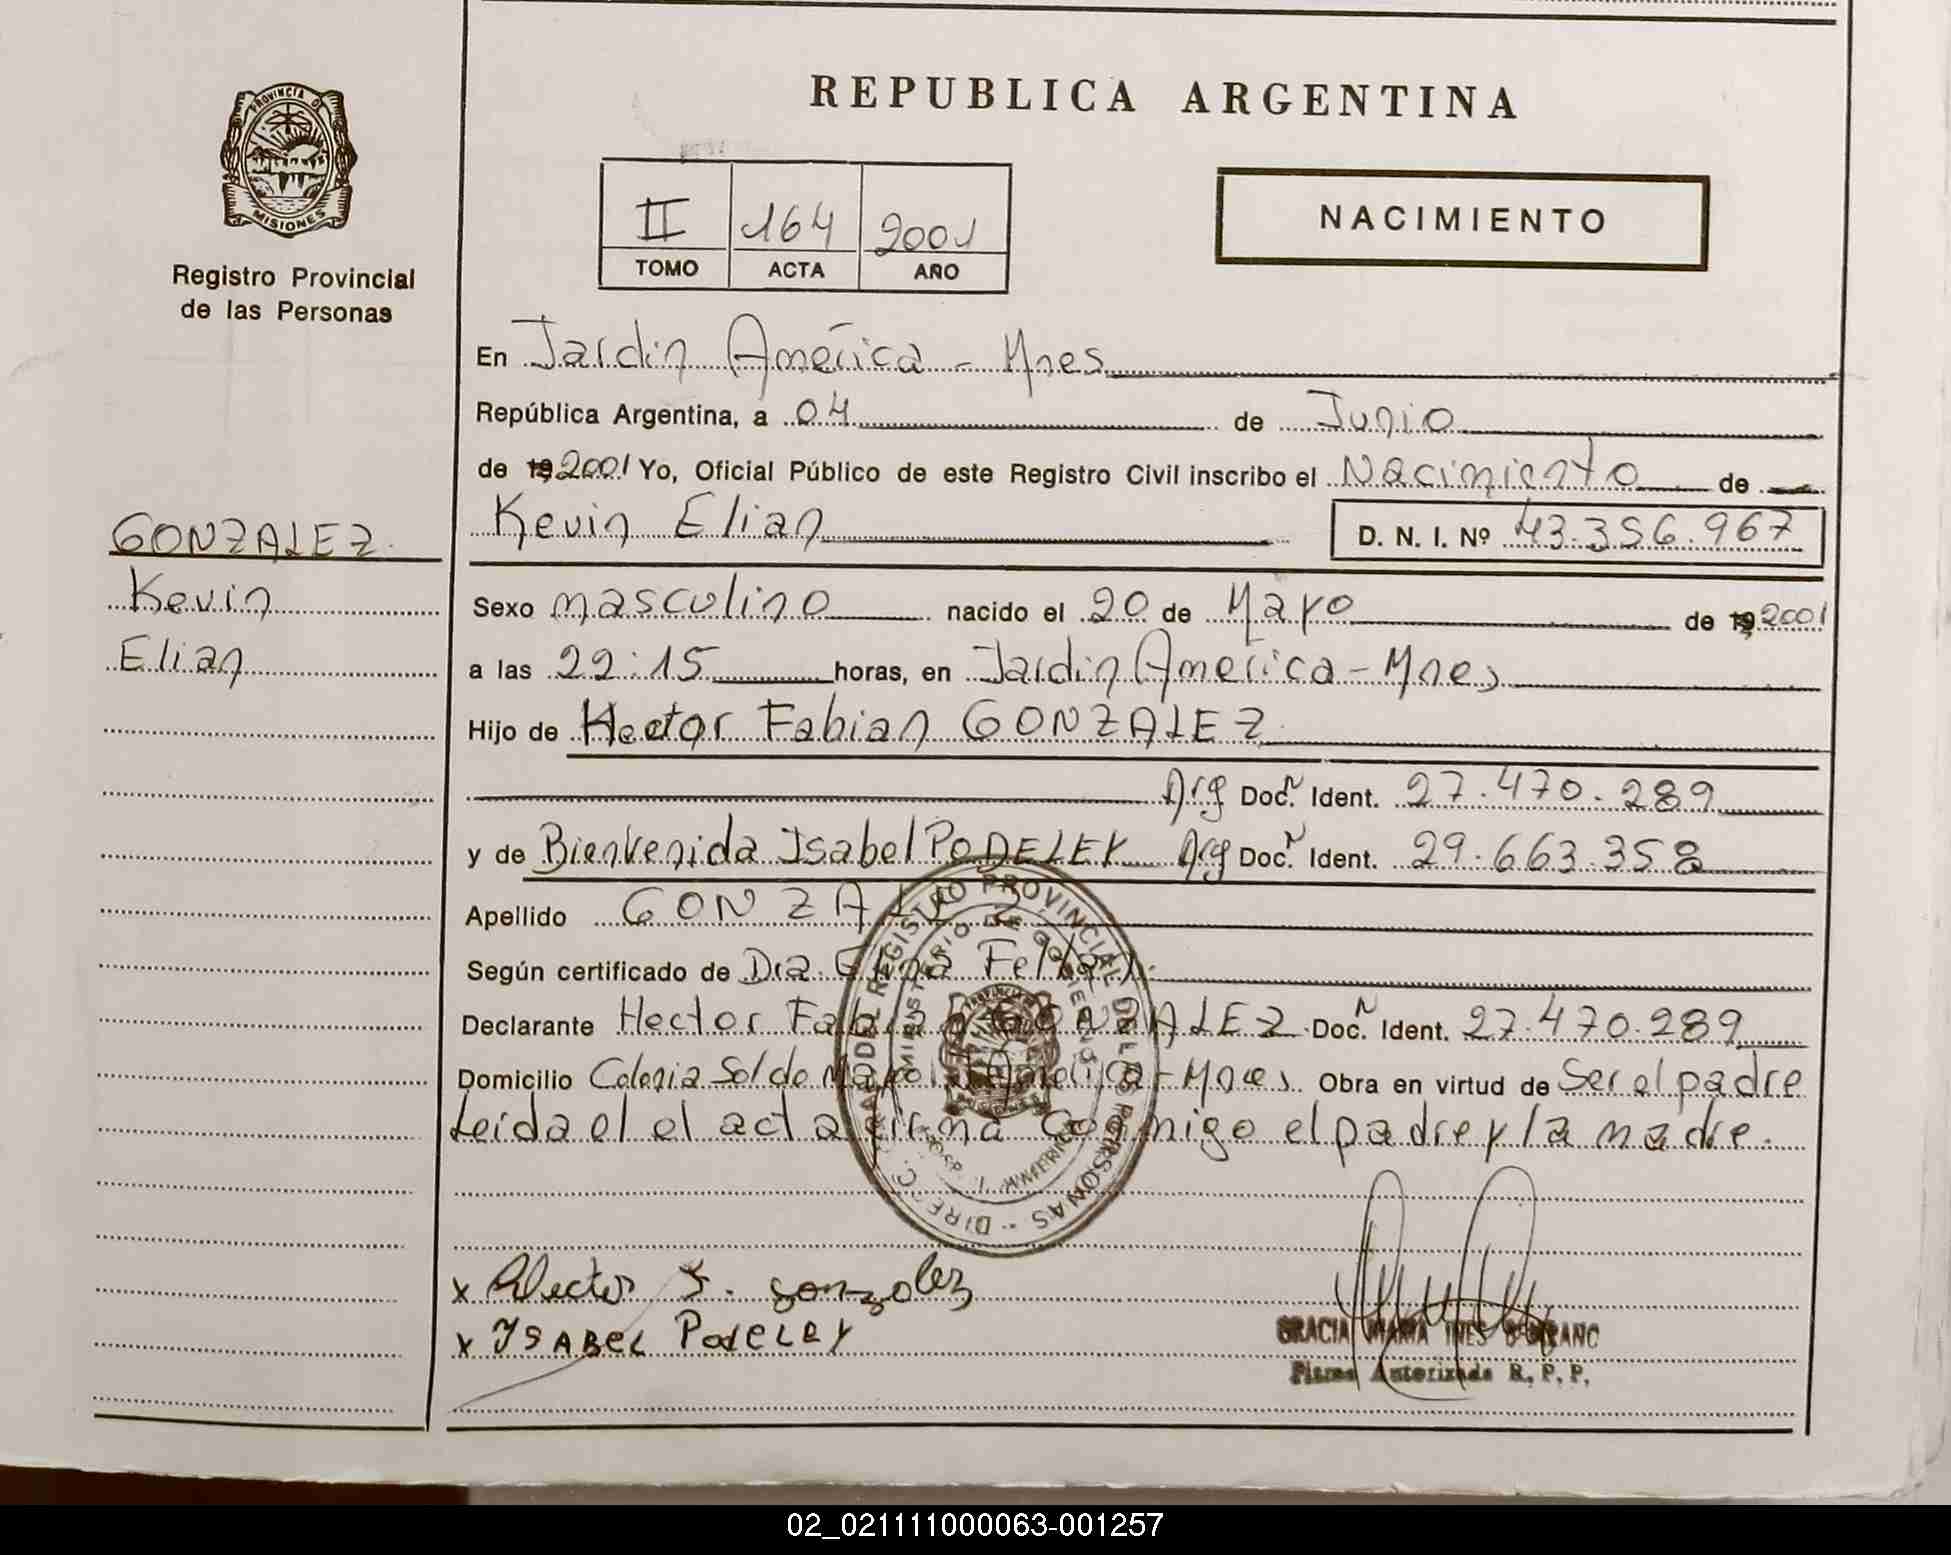 REPUBLICA ARGENTINA
PROVINCIA D
MISIONES
Registro Provincial
de las Personas
II 164 2001
TOMO ACTA AÑO
NACIMIENTO
En Jardin América - Mnes
República Argentina, a 04 de Junio
de 19 2001 Yo, Oficial Público de este Registro Civil inscribo el Nacimiento de
Kevin Elian D. N. I. Nº 43.356.967
GONZALEZ
Kevin
Elian
Sexo masculino nacido el 20 de Mayo de 19 2001
a las 22:15 horas, en Jardin America - Mnes
Hijo de Hector Fabian GONZALEZ
Arg Doc. Ident. 27.470.289
y de Bienvenida Isabel PODELEY Arg Doc. Ident. 29.663.358
Apellido GONZALEZ
Según certificado de Dra.
Declarante Hector Fabian GONZALEZ Doc. Ident. 27.470.289
Domicilio Colonia Sol de Mayo America - Mnes Obra en virtud de Ser el padre
Leida el el acta firma Conmigo el padre y la madre.
DIREC. GRAL. DEL REGISTRO PROVINCIAL DE LAS PERSONAS
MINISTERIO DE GOBIERNO
x Hector F. gonzolez
x ISABEL PodeLEY
GRACIA MARIA INES
Firma Autorizada R. P. P.
02_021111000063-001257